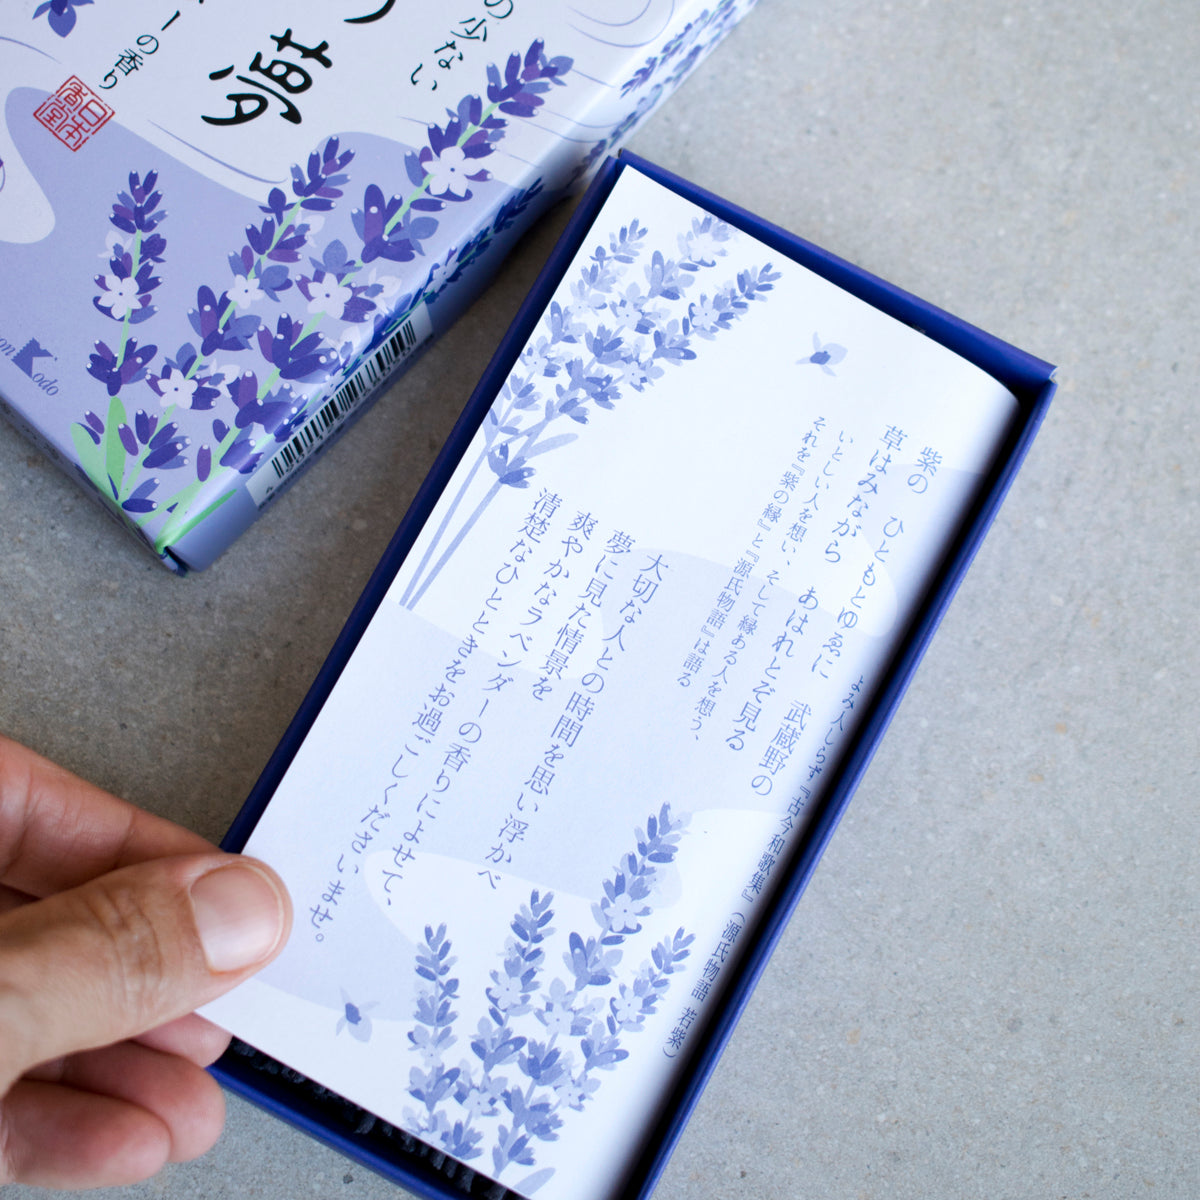 の少ない
夢
ーの香り
日本香堂
Kodo
紫の ひともとゆゑに 武蔵野の
草はみながら あはれとぞ見る
よみ人しらず『古今和歌集』（源氏物語 若紫）
いとしい人を想い、そして縁ある人を想う、
それを『紫の縁』と『源氏物語』は語る
大切な人との時間を思い浮かべ
夢に見た情景を
爽やかなラベンダーの香りによせて、
清楚なひとときをお過ごしくださいませ。